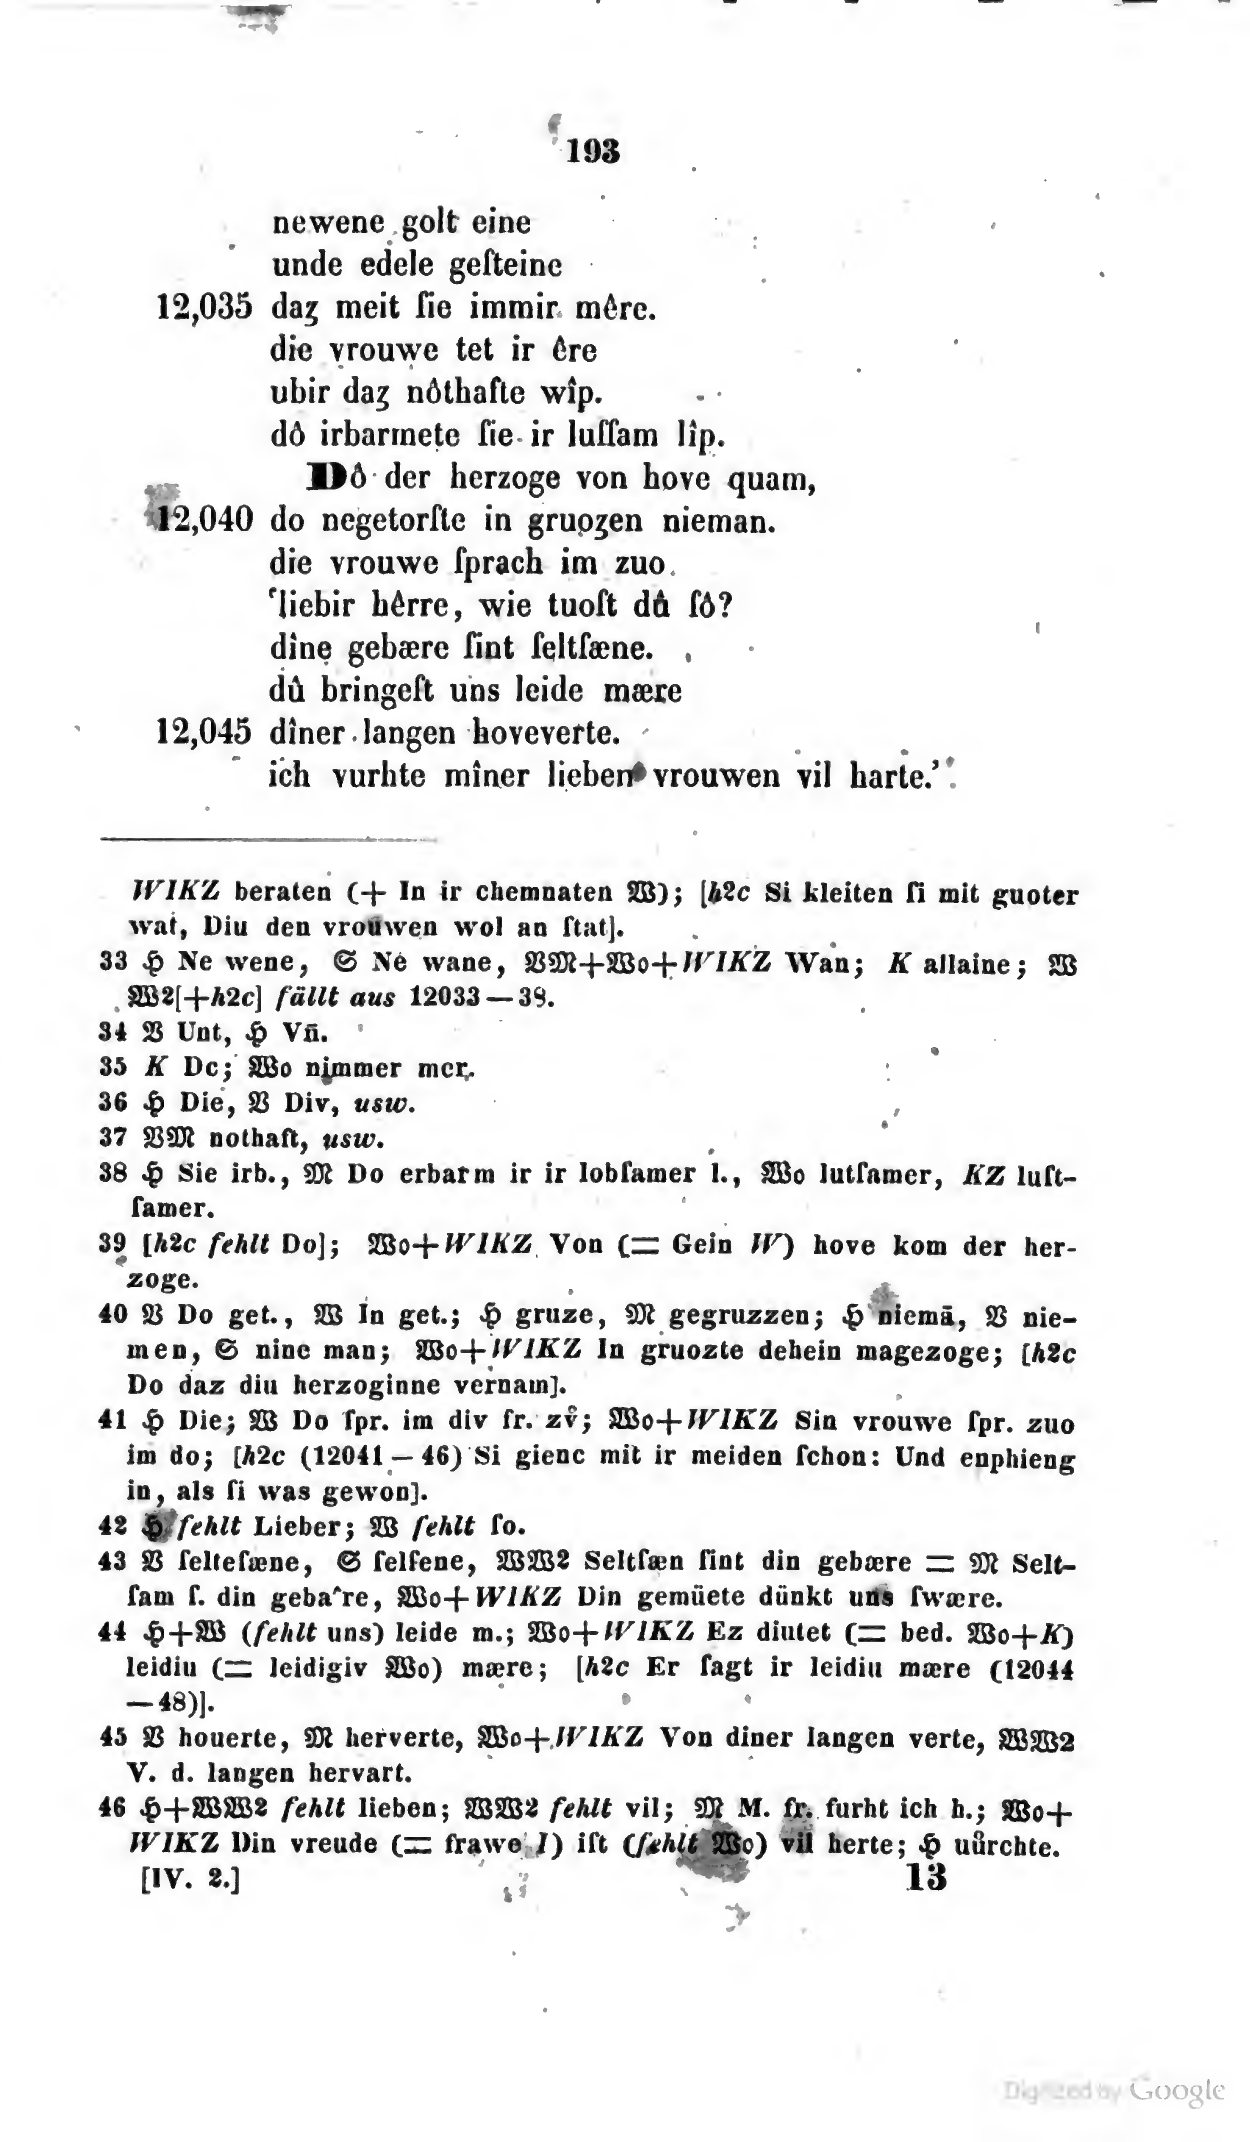 193
newene golt eine
unde edele geſteine
12,035 daʒ meit ſie immir mêre.
die vrouwe tet ir êre
ubir daʒ nôthafte wîp.
dô irbarmete ſie ir luſſam lîp.
Dô der herzoge von hove quam,
12,040 do negetorſte in gruoʒen nieman.
die vrouwe ſprach im zuo
‘liebir hêrre, wie tuoſt dû ſô?
dîne gebære ſint ſeltſæne.
dû bringeſt uns leide mære
12,045 dîner langen hoveverte.
ich vurhte mîner lieben vrouwen vil harte.’
WIKZ beraten (+ In ir chemnaten 𝔚); [h2c Si kleiten ſi mit guoter
wat, Diu den vrouwen wol an ſtat].
33 ℌ Ne wene, 𝔖 Ne wane, 𝔅𝔐+𝔚o+WIKZ Wan; K allaine; 𝔚
𝔚2[+h2c] fällt aus 12033—38.
34 𝔅 Unt, ℌ Vn̄.
35 K Dc; 𝔚o nimmer mer.
36 ℌ Die, 𝔅 Div, usw.
37 𝔅𝔐 nothaft, usw.
38 ℌ Sie irb., 𝔐 Do erbarm ir ir lobſamer l., 𝔚o lutſamer, KZ luſt-
ſamer.
39 [h2c fehlt Do]; 𝔚o+WIKZ Von (= Gein W) hove kom der her-
zoge.
40 𝔅 Do get., 𝔚 In get.; ℌ gruze, 𝔐 gegruzzen; ℌ niemā, 𝔅 nie-
men, 𝔖 nine man; 𝔚o+WIKZ In gruozte dehein magezoge; [h2c
Do daz diu herzoginne vernam].
41 ℌ Die; 𝔚 Do ſpr. im div fr. zv̂; 𝔚o+WIKZ Sin vrouwe ſpr. zuo
im do; [h2c (12041—46) Si gienc mit ir meiden ſchon: Und enphieng
in, als ſi was gewon].
42 ℌ fehlt Lieber; 𝔚 fehlt ſo.
43 𝔅 ſelteſæne, 𝔖 ſelſene, 𝔚𝔚2 Seltſæn ſint din gebære = 𝔐 Selt-
ſam ſ. din geba^re, 𝔚o+WIKZ Din gemüete dünkt uns ſwære.
44 ℌ+𝔚 (fehlt uns) leide m.; 𝔚o+WIKZ Ez diutet (= bed. 𝔚o+K)
leidiu (= leidigiv 𝔚o) mære; [h2c Er ſagt ir leidiu mære (12044
—48)].
45 𝔅 houerte, 𝔐 herverte, 𝔚o+WIKZ Von diner langen verte, 𝔚𝔚2
V. d. langen hervart.
46 ℌ+𝔚𝔚2 fehlt lieben; 𝔚𝔚2 fehlt vil; 𝔐 M. fr. furht ich h.; 𝔚o+
WIKZ Din vreude (= frawe I) iſt (fehlt 𝔚o) vil herte; ℌ uůrchte.
[IV. 2.] 13
Digitized by Google